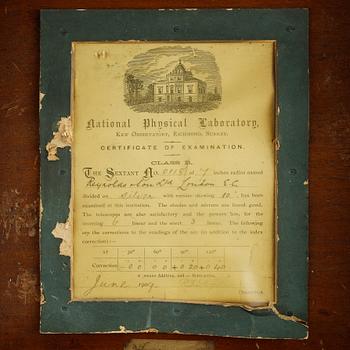 National Physical Laboratory,
Kew Observatory, Richmond, Surrey.
CERTIFICATE OF EXAMINATION.
CLASS B.
The Sextant No. 7 inches radius named
Reynolds & Son Ltd London E.C.
divided on Silver with vernier showing 10" has been
examined at this institution. The shades and mirrors are found good.
The telescopes are also satisfactory and the powers low, for the
inverting 6 times and the erect 3 times.
the corrections to the readings of the arc (in addition to the index
correction):—
0° 30° 60° 90° 120°
Correction
means Additive, and − Subtractive.
June